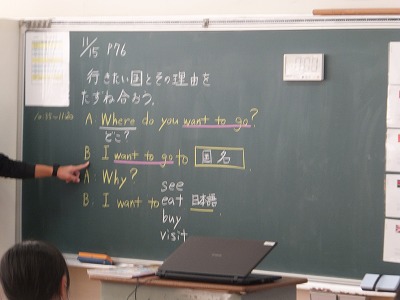 11/15 P76
行きたい国とその理由を
たずね合おう。
A: Where do you want to go?
どこ?
B: I want to go to 国名.
A: Why?
see
B: I want to eat 日本語.
buy
visit